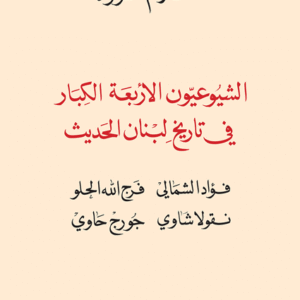 الشيوعيّون الأربعة الكِبَار
في تاريخ لِبْنان الحَديث
فؤاد الشمالي فَرَج الله الحلو
نقولا شاوي جورج حَاوي